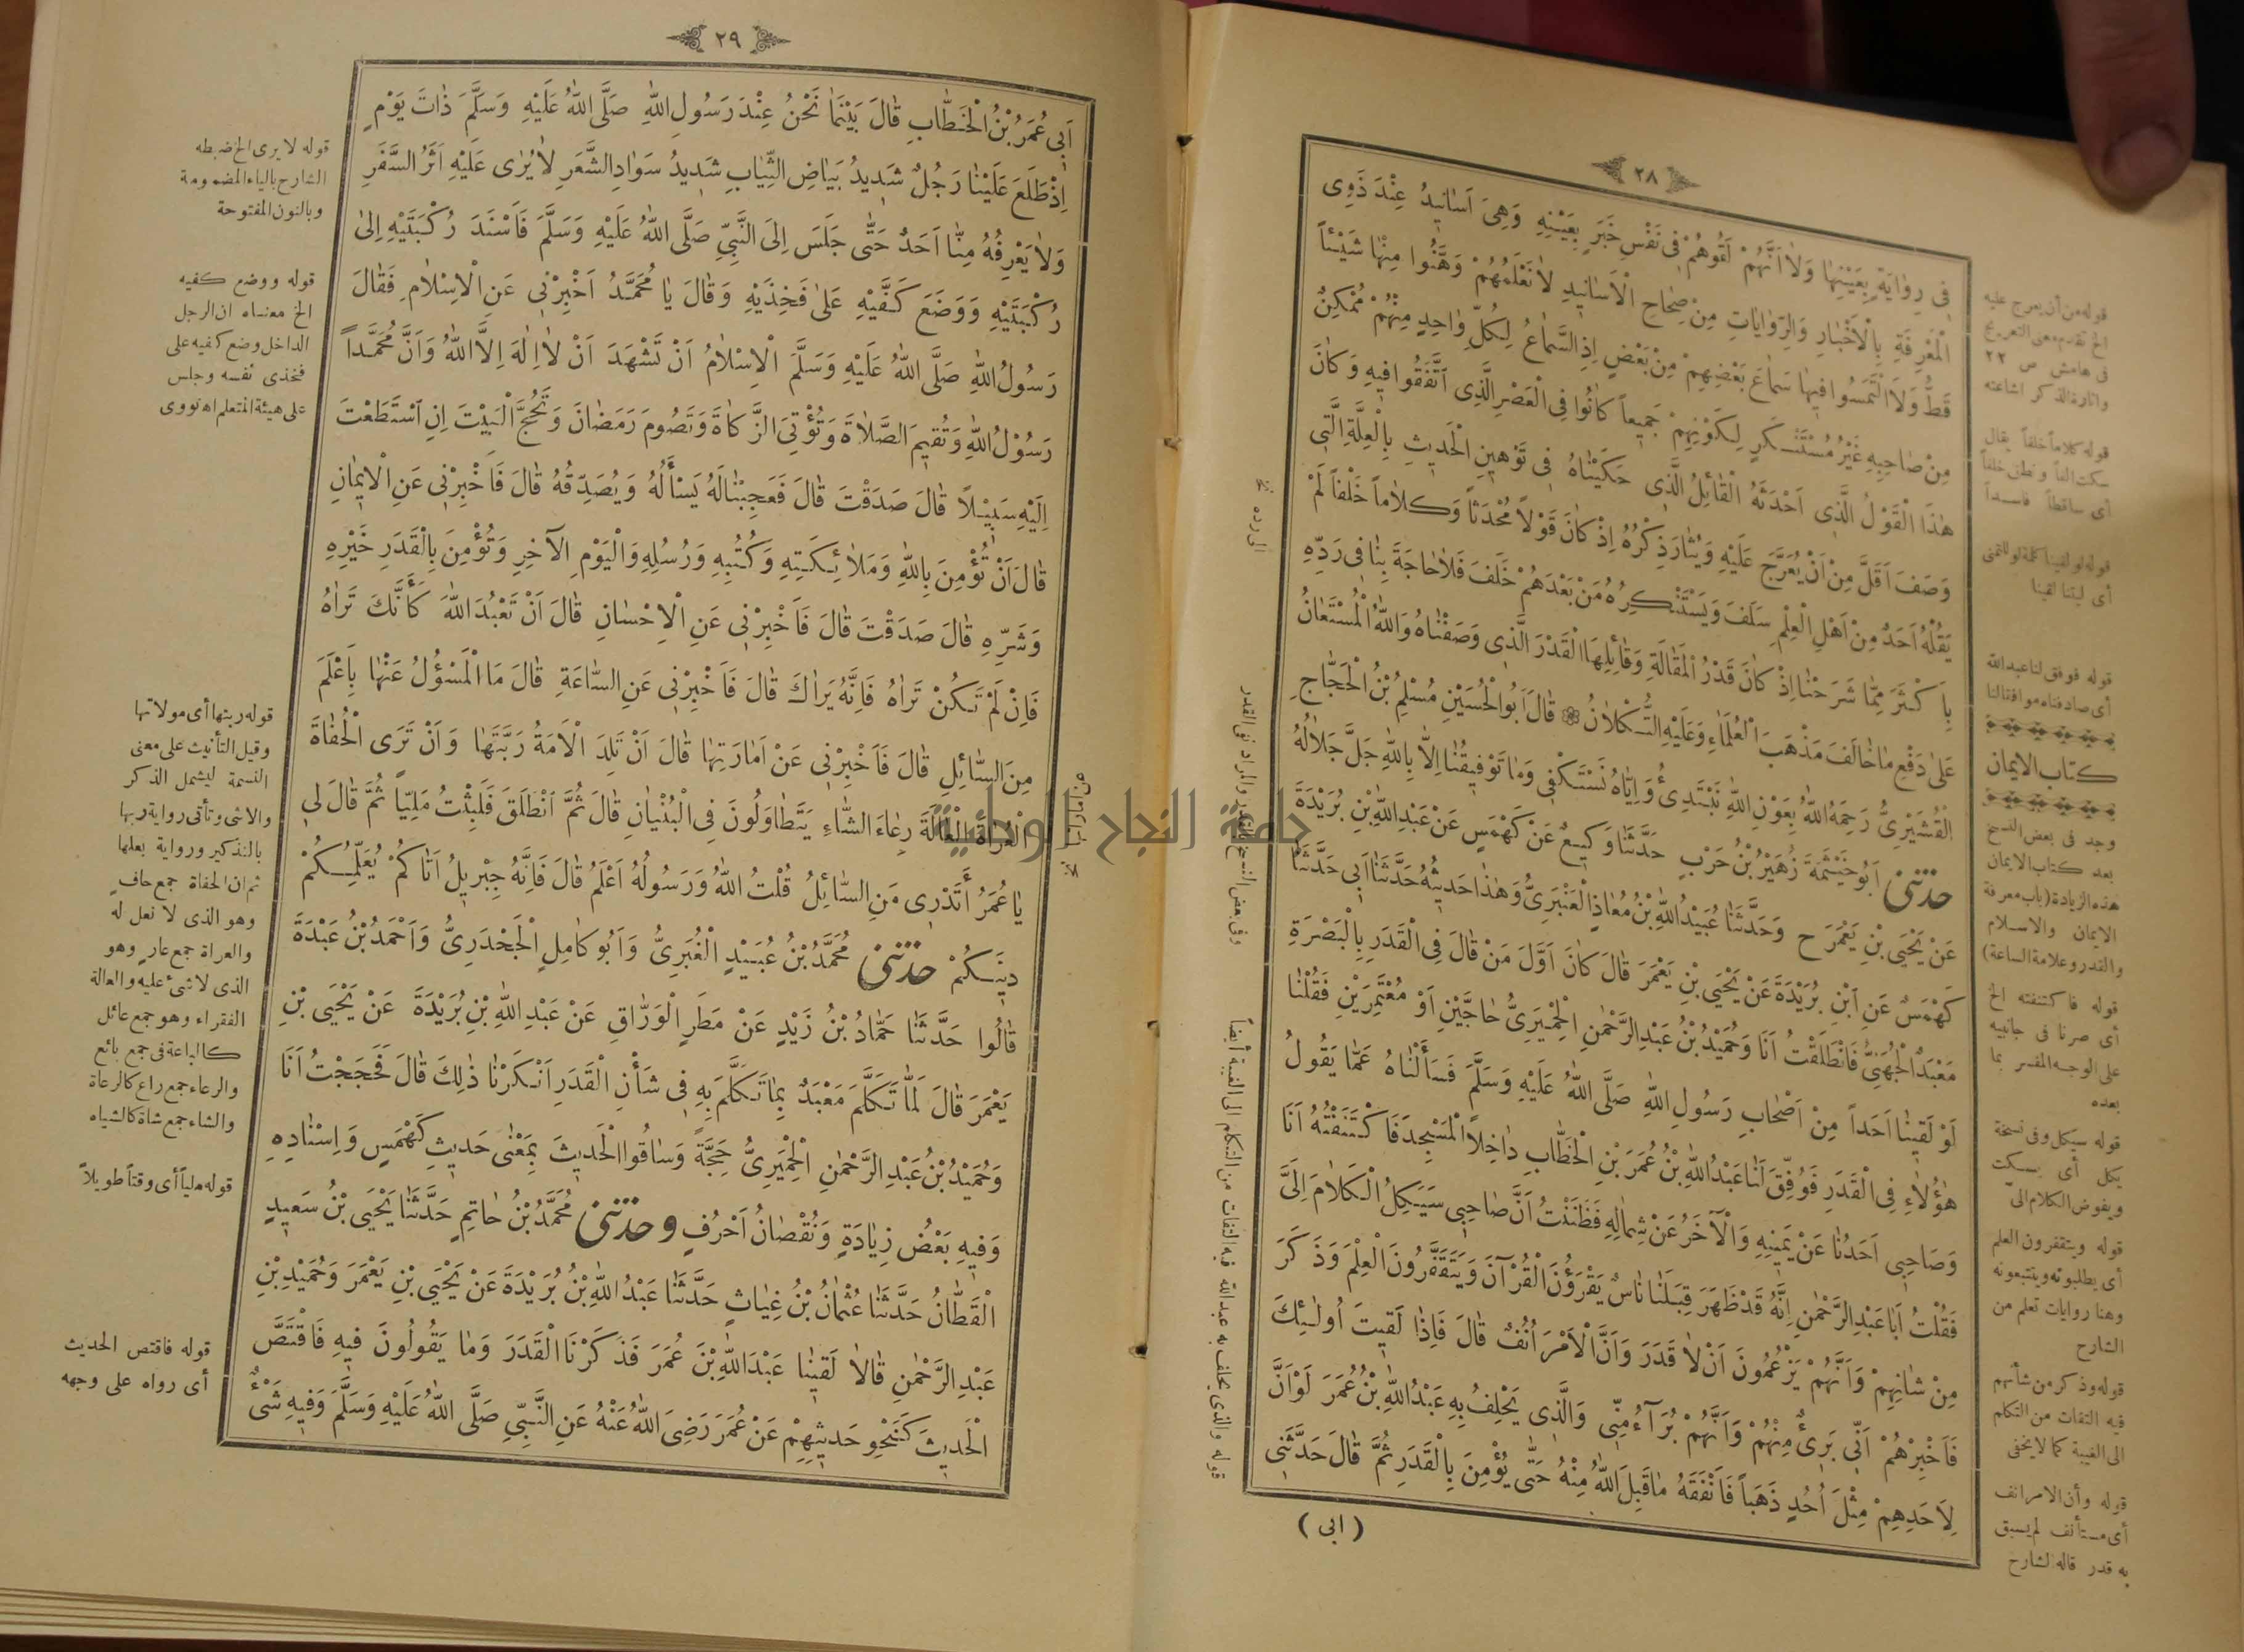 ٢٨
فِى رِوَايَةٍ بِعَيْنِهَا وَلَا اَنَّهُمْ اَقْوَهُمْ فِى نَفْسِ خَبَرٍ بِعَيْنِهِ وَهِىَ اَسَانِيدُ عِنْدَ ذَوِى
الْمَعْرِفَةِ بِالْاَخْبَارِ وَالرِّوَايَاتِ مِنْ صِحَاحِ الْاَسَانِيدِ لَا نَعْلَمُهُمْ وَهَّنُوا مِنْهَا شَيْئاً
قَطُّ وَلَا الْتَمَسُوا فِيهَا سَمَاعَ بَعْضِهِمْ مِنْ بَعْضٍ اِذِ السَّمَاعُ لِكُلِّ وَاحِدٍ مِنْهُمْ مُمْكِنٌ
مِنْ صَاحِبِهِ غَيْرُ مُسْتَنْكَرٍ لِكَوْنِهِمْ جَمِيعاً كَانُوا فِى الْعَصْرِ الَّذِى اتَّفَقُوا فِيهِ وَكَانَ
هٰذَا الْقَوْلُ الَّذِى اَحْدَثَهُ الْقَائِلُ الَّذِى حَكَيْنَاهُ فِى تَوْهِينِ الْحَدِيثِ بِالْعِلَّةِ الَّتِى
وَصَفَ اَقَلَّ مِنْ اَنْ يُعَرَّجَ عَلَيْهِ وَيُثَارَ ذِكْرُهُ اِذْ كَانَ قَوْلاً مُحْدَثاً وَكَلَاماً خَلْفاً لَمْ
يَقُلْهُ اَحَدٌ مِنْ اَهْلِ الْعِلْمِ سَلَفَ وَيَسْتَنْكِرُهُ مَنْ بَعْدَهُمْ خَلَفَ فَلَا حَاجَةَ بِنَا فِى رَدِّهِ
بِاَكْثَرَ مِمَّا شَرَحْنَا اِذْ كَانَ قَدْرُ الْمَقَالَةِ وَقَائِلِهَا الْقَدْرَ الَّذِى وَصَفْنَاهُ وَاللّٰهُ الْمُسْتَعَانُ
عَلٰى دَفْعِ مَا خَالَفَ مَذْهَبَ الْعُلَمَاءِ وَعَلَيْهِ التُّكْلَانُ ❁ قَالَ اَبُو الْحُسَيْنِ مُسْلِمُ بْنُ الْحَجَّاجِ
الْقُشَيْرِىُّ رَحِمَهُ اللّٰهُ بِعَوْنِ اللّٰهِ نَبْتَدِئُ وَاِيَّاهُ نَسْتَكْفِى وَمَا تَوْفِيقُنَا اِلَّا بِاللّٰهِ جَلَّ جَلَالُهُ
حدثنى اَبُو خَيْثَمَةَ زُهَيْرُ بْنُ حَرْبٍ حَدَّثَنَا وَكِيعٌ عَنْ كَهْمَسٍ عَنْ عَبْدِ اللّٰهِ بْنِ بُرَيْدَةَ
عَنْ يَحْيَى بْنِ يَعْمَرَ ح وَحَدَّثَنَا عُبَيْدُ اللّٰهِ بْنُ مُعَاذٍ الْعَنْبَرِىُّ وَهٰذَا حَدِيثُهُ حَدَّثَنَا اَبِى حَدَّثَنَا
كَهْمَسٌ عَنِ ابْنِ بُرَيْدَةَ عَنْ يَحْيَى بْنِ يَعْمَرَ قَالَ كَانَ اَوَّلَ مَنْ قَالَ فِى الْقَدَرِ بِالْبَصْرَةِ
مَعْبَدٌ الْجُهَنِىُّ فَانْطَلَقْتُ اَنَا وَحُمَيْدُ بْنُ عَبْدِ الرَّحْمٰنِ الْحِمْيَرِىُّ حَاجَّيْنِ اَوْ مُعْتَمِرَيْنِ فَقُلْنَا
لَوْ لَقِينَا اَحَداً مِنْ اَصْحَابِ رَسُولِ اللّٰهِ صَلَّى اللّٰهُ عَلَيْهِ وَسَلَّمَ فَسَأَلْنَاهُ عَمَّا يَقُولُ
هٰؤُلَاءِ فِى الْقَدَرِ فَوُفِّقَ لَنَا عَبْدُ اللّٰهِ بْنُ عُمَرَ بْنِ الْخَطَّابِ دَاخِلاً الْمَسْجِدَ فَاكْتَنَفْتُهُ اَنَا
وَصَاحِبِى اَحَدُنَا عَنْ يَمِينِهِ وَالْآخَرُ عَنْ شِمَالِهِ فَظَنَنْتُ اَنَّ صَاحِبِى سَيَكِلُ الْكَلَامَ اِلَىَّ
فَقُلْتُ اَبَا عَبْدِ الرَّحْمٰنِ اِنَّهُ قَدْ ظَهَرَ قِبَلَنَا نَاسٌ يَقْرَؤُنَ الْقُرْآنَ وَيَتَقَفَّرُونَ الْعِلْمَ وَذَكَرَ
مِنْ شَانِهِمْ وَاَنَّهُمْ يَزْعُمُونَ اَنْ لَا قَدَرَ وَاَنَّ الْاَمْرَ اُنُفٌ قَالَ فَاِذَا لَقِيتَ اُولٰئِكَ
فَاَخْبِرْهُمْ اَنِّى بَرِىءٌ مِنْهُمْ وَاَنَّهُمْ بُرَآءُ مِنِّى وَالَّذِى يَحْلِفُ بِهِ عَبْدُ اللّٰهِ بْنُ عُمَرَ لَوْ اَنَّ
لِاَحَدِهِمْ مِثْلَ اُحُدٍ ذَهَباً فَاَنْفَقَهُ مَا قَبِلَ اللّٰهُ مِنْهُ حَتَّى يُؤْمِنَ بِالْقَدَرِ ثُمَّ قَالَ حَدَّثَنِى
( ابى )
قوله من أن يعرج عليه
الخ تقدم معنى التعريج
فى هامش ص ٢٢
واثارة الذكر اشاعته
قوله كلاماً خلفاً يقال
سكت الفاً ونطق خلفاً
أى ساقطاً فاسداً
قوله لو لقينا كلمة لو للتمنى
أى ليتنا لقينا
قوله فوفق لنا عبد الله
أى صادفناه موافقا لنا
كتاب الايمان
وجد فى بعض النسخ
بعد كتاب الايمان
هذه الزيادة (باب معرفة
الايمان والاسلام
والقدر وعلامة الساعة)
قوله فاكتنفته الخ
أى صرنا فى جانبيه
على الوجه المفسر بما
بعده
قوله سيكل وفى نسخة
يكل أى يسكت
ويفوض الكلام الىّ
قوله ويتقفرون العلم
أى يطلبونه ويتتبعونه
وهنا روايات تعلم من
الشارح
قوله وذكر من شأنهم
فيه التفات من التكلم
الى الغيبة كما لا يخفى
قوله وأن الامر انف
أى مستأنف لم يسبق
به قدر قاله الشارح
الى رده نخ
وفى بعض النسخ والقدر والمراد نفى القدر
قوله والذى يحلف به عبد الله فيه التفات من التكلم الى الغيبة أيضاً
جامعة النجاح الوطنية
٢٩
اَبِى عُمَرُ بْنُ الْخَطَّابِ قَالَ بَيْنَمَا نَحْنُ عِنْدَ رَسُولِ اللّٰهِ صَلَّى اللّٰهُ عَلَيْهِ وَسَلَّمَ ذَاتَ يَوْمٍ
اِذْ طَلَعَ عَلَيْنَا رَجُلٌ شَدِيدُ بَيَاضِ الثِّيَابِ شَدِيدُ سَوَادِ الشَّعَرِ لَا يُرٰى عَلَيْهِ اَثَرُ السَّفَرِ
وَلَا يَعْرِفُهُ مِنَّا اَحَدٌ حَتّٰى جَلَسَ اِلَى النَّبِىِّ صَلَّى اللّٰهُ عَلَيْهِ وَسَلَّمَ فَاَسْنَدَ رُكْبَتَيْهِ اِلٰى
رُكْبَتَيْهِ وَوَضَعَ كَفَّيْهِ عَلٰى فَخِذَيْهِ وَقَالَ يَا مُحَمَّدُ اَخْبِرْنِى عَنِ الْاِسْلَامِ فَقَالَ
رَسُولُ اللّٰهِ صَلَّى اللّٰهُ عَلَيْهِ وَسَلَّمَ الْاِسْلَامُ اَنْ تَشْهَدَ اَنْ لَا اِلٰهَ اِلَّا اللّٰهُ وَاَنَّ مُحَمَّداً
رَسُوْلُ اللّٰهِ وَتُقِيمَ الصَّلَاةَ وَتُؤْتِىَ الزَّكَاةَ وَتَصُومَ رَمَضَانَ وَتَحُجَّ الْبَيْتَ اِنِ اسْتَطَعْتَ
اِلَيْهِ سَبِيْلاً قَالَ صَدَقْتَ قَالَ فَعَجِبْنَا لَهُ يَسْأَلُهُ وَيُصَدِّقُهُ قَالَ فَاَخْبِرْنِى عَنِ الْاِيمَانِ
قَالَ اَنْ تُؤْمِنَ بِاللّٰهِ وَمَلَائِكَتِهِ وَكُتُبِهِ وَرُسُلِهِ وَالْيَوْمِ الْآخِرِ وَتُؤْمِنَ بِالْقَدَرِ خَيْرِهِ
وَشَرِّهِ قَالَ صَدَقْتَ قَالَ فَاَخْبِرْنِى عَنِ الْاِحْسَانِ قَالَ اَنْ تَعْبُدَ اللّٰهَ كَأَنَّكَ تَرَاهُ
فَاِنْ لَمْ تَكُنْ تَرَاهُ فَاِنَّهُ يَرَاكَ قَالَ فَاَخْبِرْنِى عَنِ السَّاعَةِ قَالَ مَا الْمَسْؤُلُ عَنْهَا بِاَعْلَمَ
مِنَ السَّائِلِ قَالَ فَاَخْبِرْنِى عَنْ اَمَارَتِهَا قَالَ اَنْ تَلِدَ الْاَمَةُ رَبَّتَهَا وَاَنْ تَرَى الْحُفَاةَ
الْعُرَاةَ الْعَالَةَ رِعَاءَ الشَّاءِ يَتَطَاوَلُونَ فِى الْبُنْيَانِ قَالَ ثُمَّ انْطَلَقَ فَلَبِثْتُ مَلِيّاً ثُمَّ قَالَ لِى
يَا عُمَرُ أَتَدْرِى مَنِ السَّائِلُ قُلْتُ اللّٰهُ وَرَسُولُهُ اَعْلَمُ قَالَ فَاِنَّهُ جِبْرِيلُ اَتَاكُمْ يُعَلِّمُكُمْ
دِينَكُمْ حدثنى مُحَمَّدُ بْنُ عُبَيْدٍ الْغُبَرِىُّ وَاَبُو كَامِلٍ الْجَحْدَرِىُّ وَاَحْمَدُ بْنُ عَبْدَةَ
قَالُوا حَدَّثَنَا حَمَّادُ بْنُ زَيْدٍ عَنْ مَطَرٍ الْوَرَّاقِ عَنْ عَبْدِ اللّٰهِ بْنِ بُرَيْدَةَ عَنْ يَحْيَى بْنِ
يَعْمَرَ قَالَ لَمَّا تَكَلَّمَ مَعْبَدٌ بِمَا تَكَلَّمَ بِهِ فِى شَأْنِ الْقَدَرِ اَنْكَرْنَا ذٰلِكَ قَالَ فَحَجَجْتُ اَنَا
وَحُمَيْدُ بْنُ عَبْدِ الرَّحْمٰنِ الْحِمْيَرِىُّ حَجَّةً وَسَاقُوا الْحَدِيثَ بِمَعْنٰى حَدِيثِ كَهْمَسٍ وَاِسْنَادِهِ
وَفِيهِ بَعْضُ زِيَادَةٍ وَنُقْصَانُ اَحْرُفٍ وحدثنى مُحَمَّدُ بْنُ حَاتِمٍ حَدَّثَنَا يَحْيَى بْنُ سَعِيدٍ
الْقَطَّانُ حَدَّثَنَا عُثْمَانُ بْنُ غِيَاثٍ حَدَّثَنَا عَبْدُ اللّٰهِ بْنُ بُرَيْدَةَ عَنْ يَحْيَى بْنِ يَعْمَرَ وَحُمَيْدِ بْنِ
عَبْدِ الرَّحْمٰنِ قَالَا لَقِينَا عَبْدَ اللّٰهِ بْنَ عُمَرَ فَذَكَرْنَا الْقَدَرَ وَمَا يَقُولُونَ فِيهِ فَاقْتَصَّ
الْحَدِيثَ كَنَحْوِ حَدِيثِهِمْ عَنْ عُمَرَ رَضِىَ اللّٰهُ عَنْهُ عَنِ النَّبِىِّ صَلَّى اللّٰهُ عَلَيْهِ وَسَلَّمَ وَفِيهِ شَىْءٌ
قوله لا يرى الخ ضبطه
الشارح بالياء المضمومة
وبالنون المفتوحة
قوله ووضع كفيه
الخ معناه ان الرجل
الداخل وضع كفيه على
فخذى نفسه وجلس
على هيئة المتعلم اه نووى
قوله ربتها أى مولاتها
وقيل التأنيث على معنى
النسمة ليشمل الذكر
والانثى وتأتى رواية ربها
بالتذكير ورواية بعلها
ثم ان الحفاة جمع حافٍ
وهو الذى لا نعل له
والعراة جمع عارٍ وهو
الذى لا شئ عليه والعالة
الفقراء وهو جمع عائل
كالباعة فى جمع بائع
والرعاء جمع راع كالرعاة
والشاء جمع شاة كالشياه
قوله ملياً أى وقتاً طويلاً
قوله فاقتص الحديث
أى رواه على وجهه